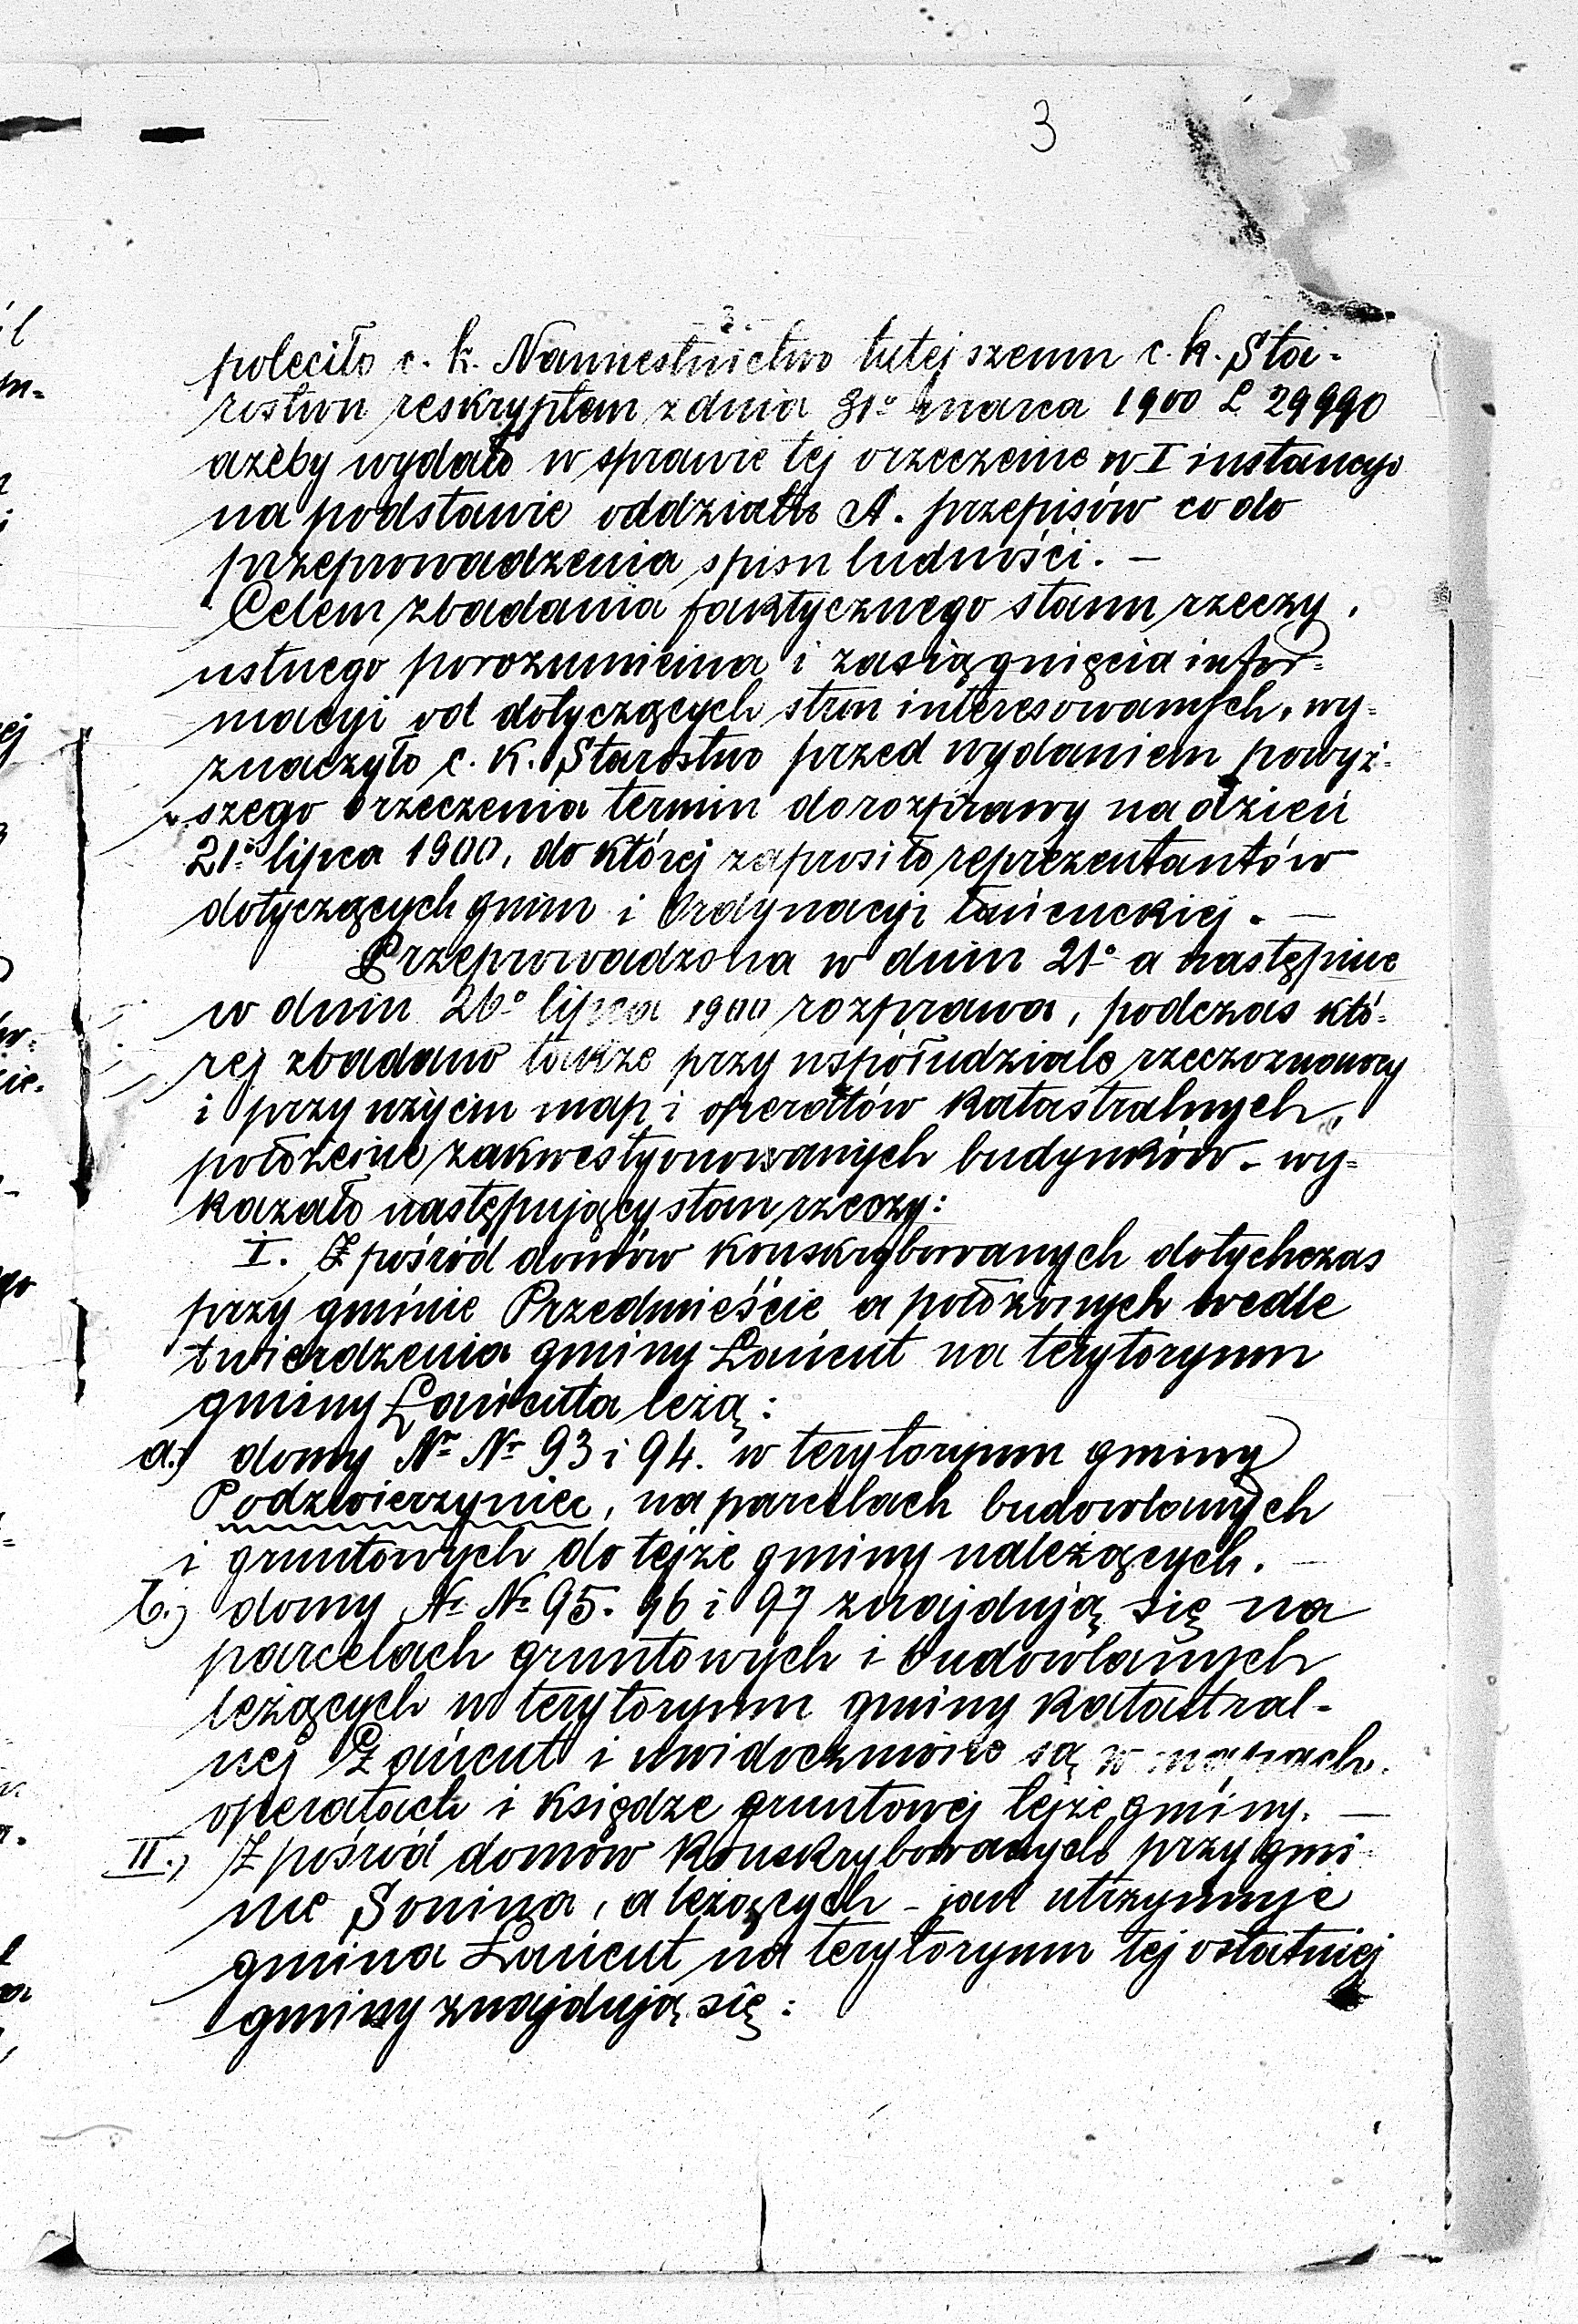 3
- 3. -
poleciło c. k. Namiestnictwo tutejszemu c. k. Sta-
rostwu reskryptem z dnia 31º marca 1900 L 29990
ażeby wydało w sprawie tej orzeczenie w I instancyi
na podstawie oddziału A. przepisów co do
przeprowadzenia spisu ludności. —
Celem zbadania faktycznego stanu rzeczy,
ustnego porozumienia i zasiągnięcia infor-
macyi od dotyczących stron interesowanych, wy-
znaczyło c. k. Starostwo przed wydaniem powyż-
szego orzeczenia termin do rozprawy na dzień
21º lipca 1900, do której zaprosiło reprezentantów
dotyczących gmin i Ordynacyi łańcuckiej. —
Przeprowadzona w dniu 21º a następnie
w dniu 26º lipca 1900 rozprawa, podczas któ-
rej zbadano także przy współudziale rzeczoznawcy
i przy użyciu map i operatów katastralnych,
położenie zakwestyonowanych budynków - wy-
kazało następujący stan rzeczy:
I. Z pośród domów konskrybowanych dotychczas
przy gminie Przedmieście a położonych wedle
twierdzenia gminy Łańcut na terytoryum
gminy Łańcuta leżą:
a.) domy Nr Nr 93 i 94. w terytoryum gminy
Podzwierzyniec, na parcelach budowlanych
i gruntowych do tejże gminy należących. —
b.) domy Nr Nr 95. 96 i 97 znajdują się na
parcelach gruntowych i budowlanych
leżących w terytoryum gminy katastral-
nej Łańcut i uwidocznione są w mapach,
operatach i księdze gruntowej tejże gminy. —
II.) Z pośród domów konskrybowanych przy gmi-
nie Sonina, a leżących - jak utrzymuje
gmina Łańcut na terytoryum tej ostatniej
gminy znajdują się: